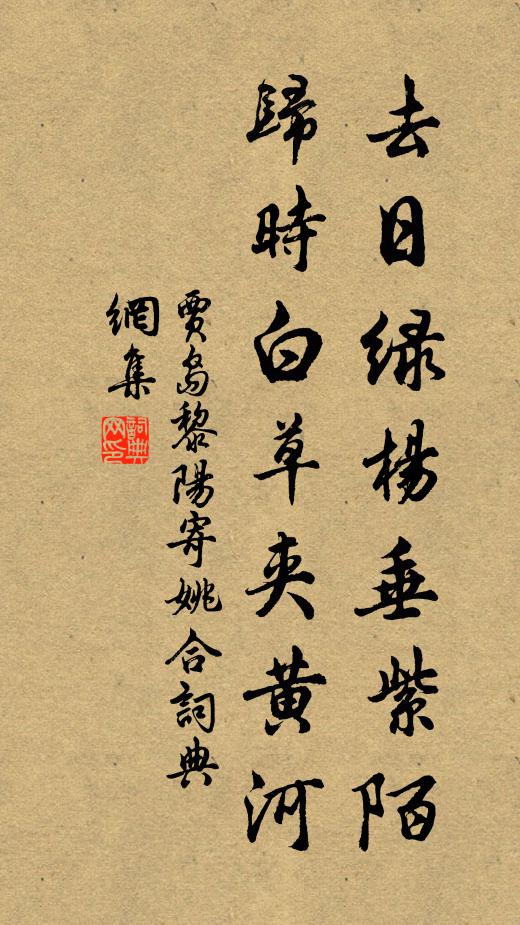 去日绿楊垂紫陌
歸時白草夹黄河
賈島黎陽寄姚合詞典
網集
詞典
网印